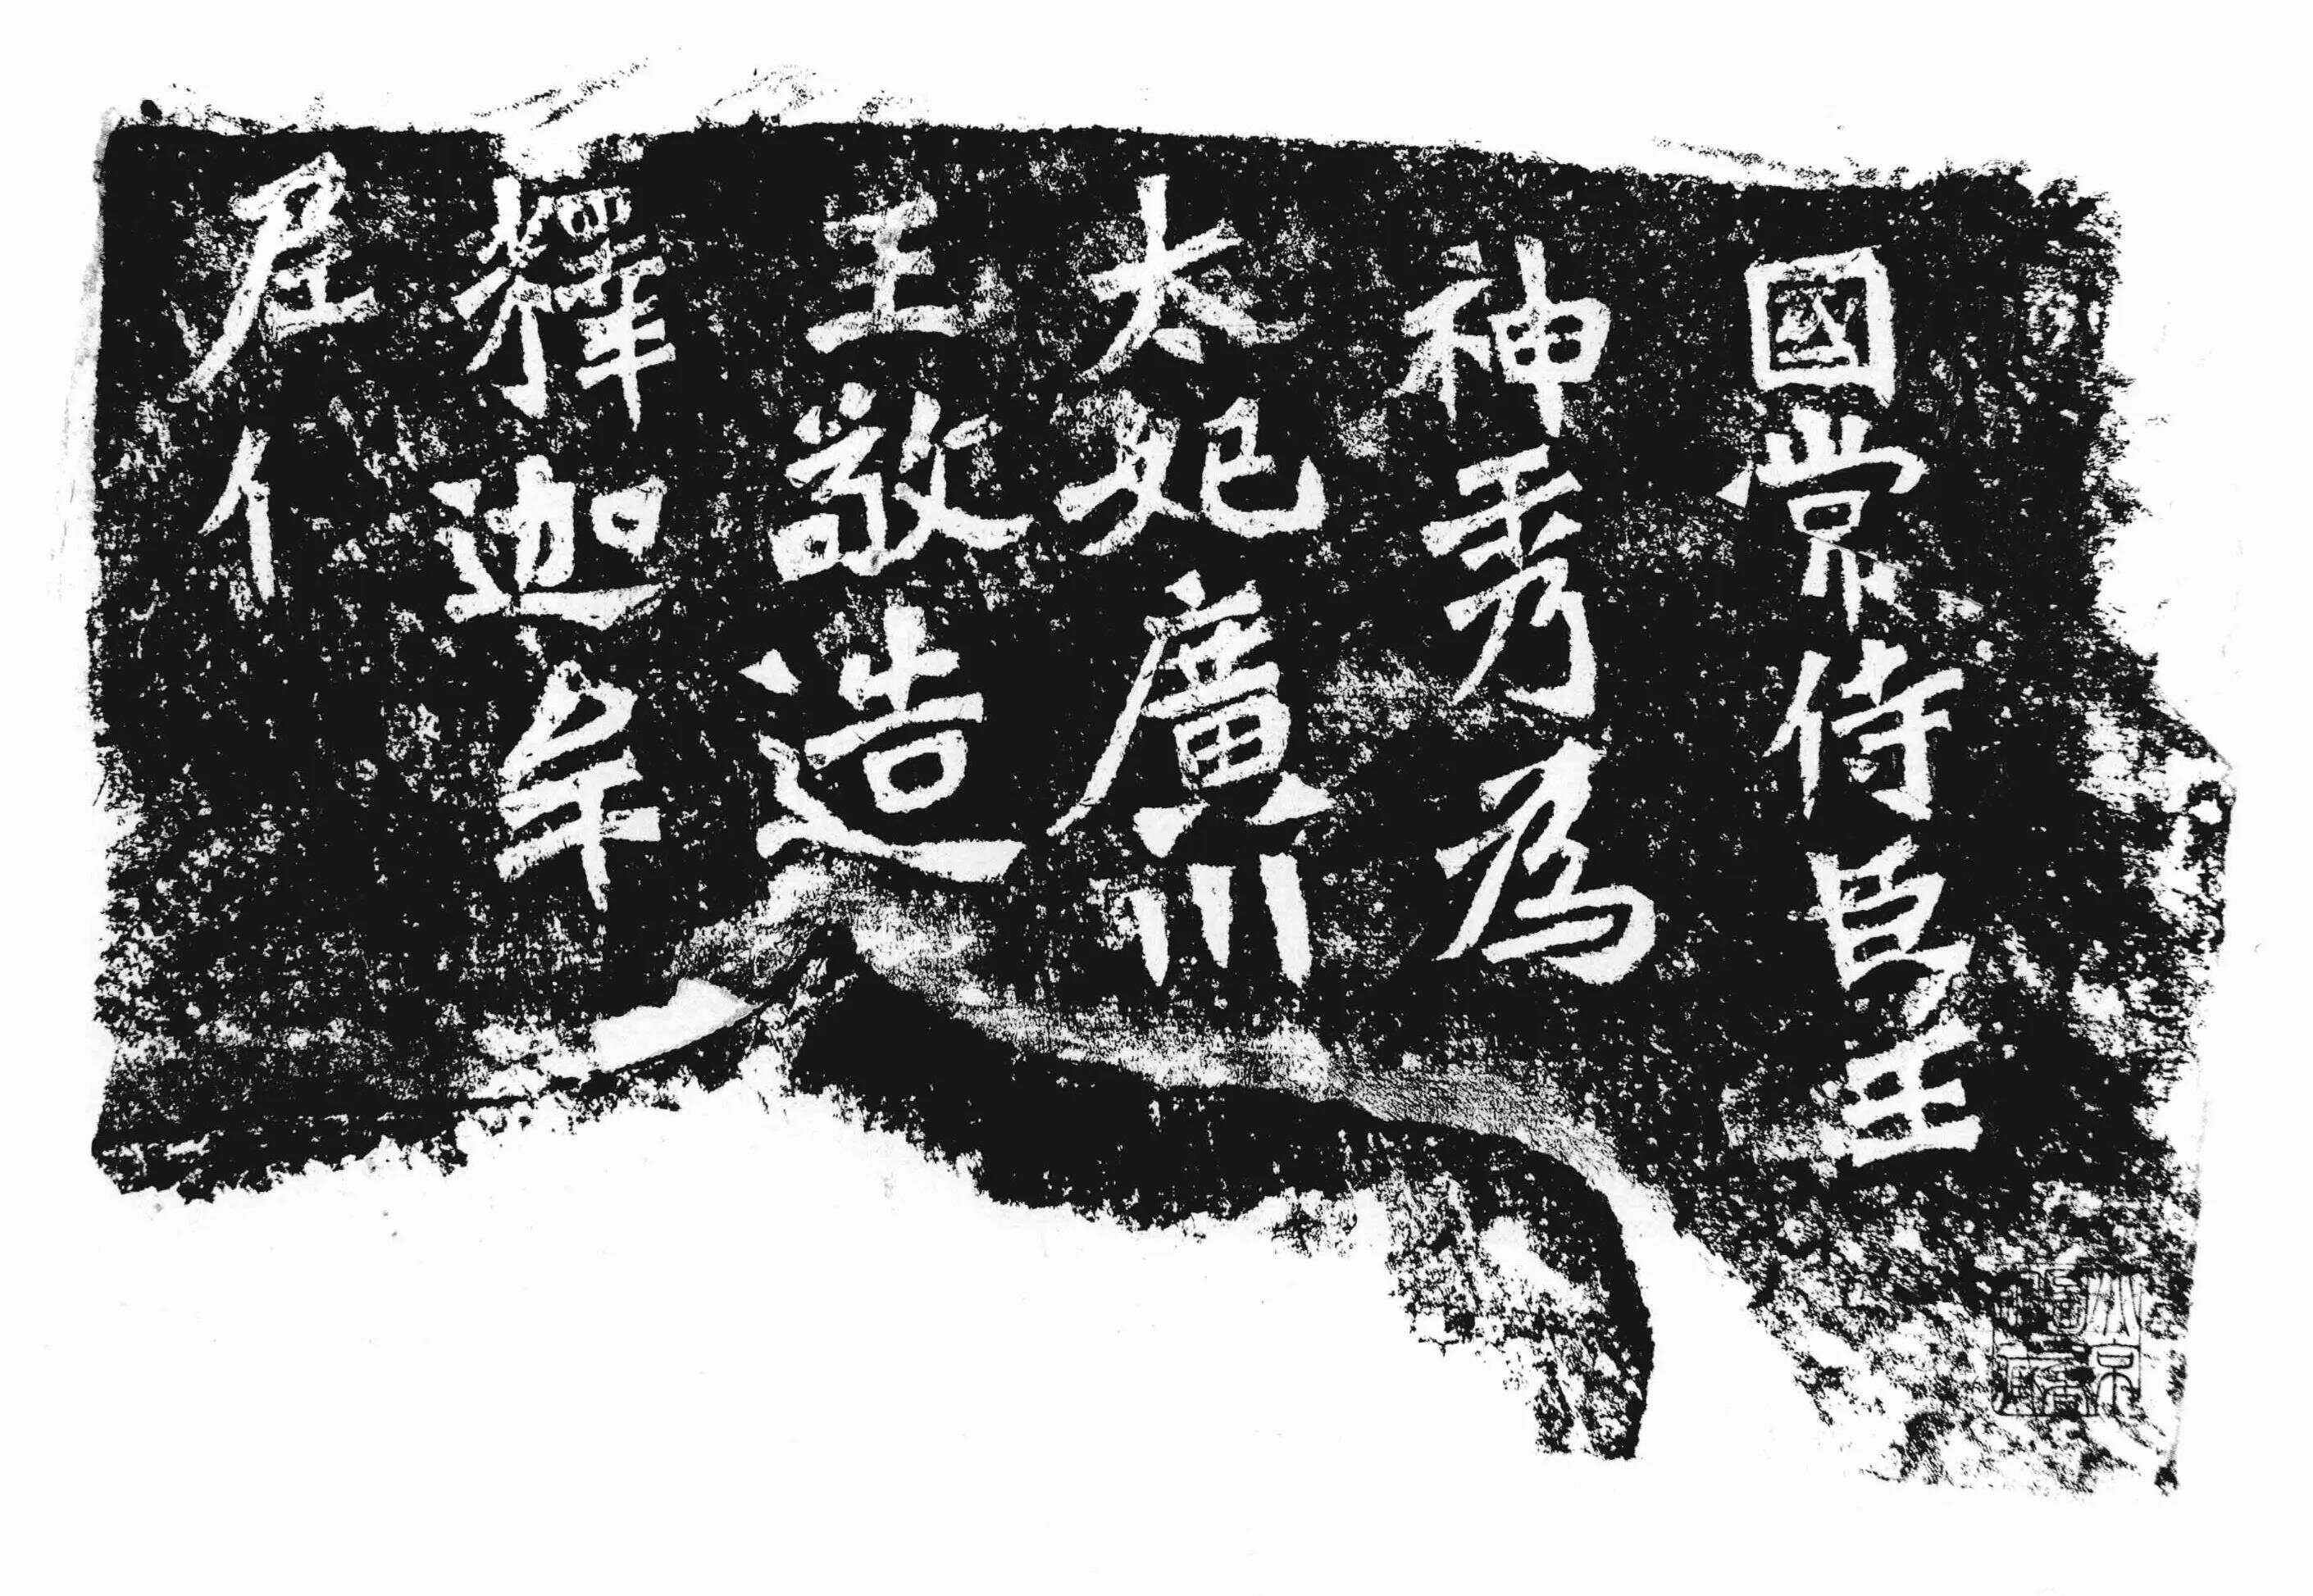 國常侍臣王
神秀為
太妃廣川
王敬造
釋迦牟
尼亻